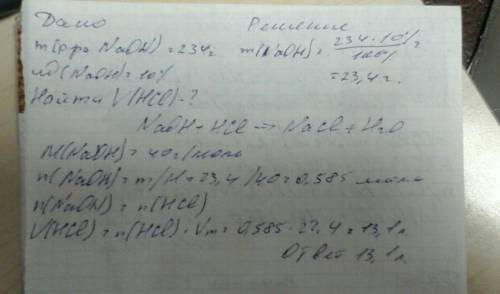 Дано Решение
m(р-ра NaOH) = 234г m(NaOH) = 234·10% / 100% =
ω(NaOH) = 10% = 23,4г.
Найти V(HCl)-?
NaOH + HCl → NaCl + H2O
M(NaOH) = 40г/моль
n(NaOH) = m/M = 23,4/40 = 0,585 моль
n(NaOH) = n(HCl)
V(HCl) = n(HCl)·Vm = 0,585·22,4 = 13,1л
Ответ 13,1л.